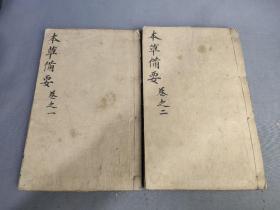 本草備要
卷之一
本草備要
卷之二